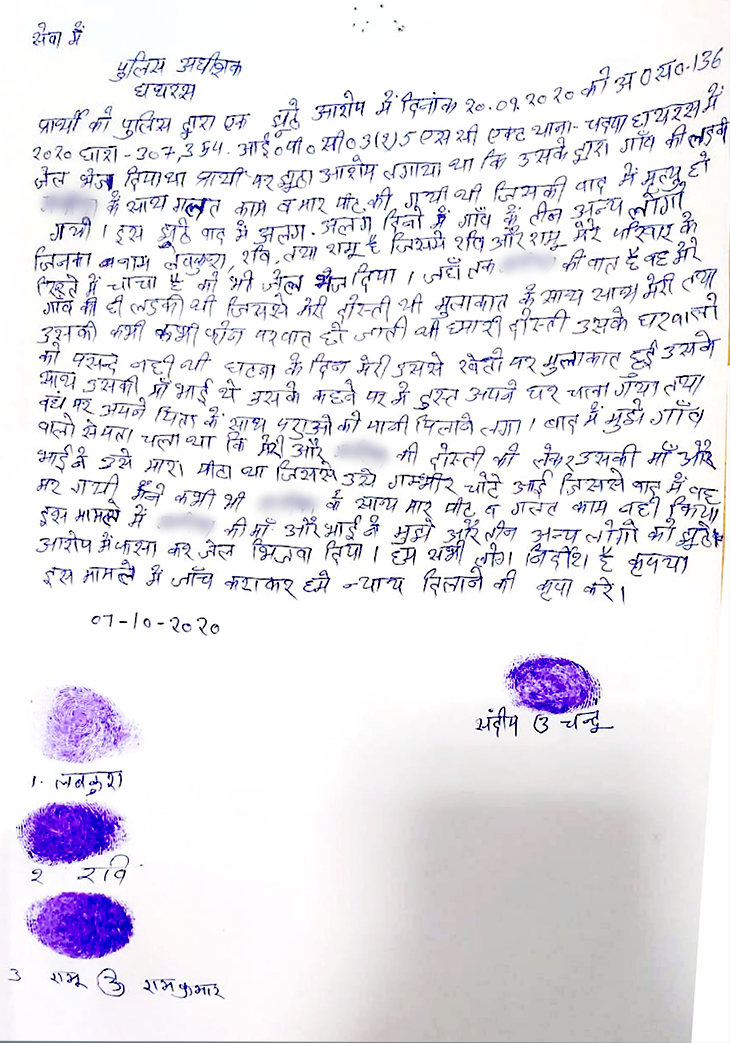 सेवा में
पुलिस अधीक्षक
हाथरस
प्रार्थी को पुलिस द्वारा एक झूठे आरोप में दिनांक 20.09.2020 को अ0स0-136
2020 धारा-307,354. आई०पी०सी० 3(2)5 एस सी एक्ट थाना-चन्दपा हाथरस में
जेल भेज दिया था प्रार्थी पर झूठा आरोप लगाया था कि उसके द्वारा गाँव की लडकी
के साथ गलत काम व मार पीट की गयी थी जिसकी बाद में मृत्यु हो
गयी। इस झूठे वाद में अलग-अलग दिनों में गाँव के तीन अन्य लोगो
जिनका नाम लवकुश, रवि, तथा रामू है जिसमे रवि और रामू मेरे परिवार के
रिश्ते में चाचा है को भी जेल भेज दिया। जहाँ तक की बात है वह मेरे
गाँव की ही लडकी थी जिससे मेरी दोस्ती थी मुलाकात के साथ साथ मेरी तथा
उसकी कभी कभी फोन पर बात हो जाती थी हमारी दोस्ती उसके घरवालो
को पसन्द नही थी घटना के दिन मेरी उससे खेतो पर मुलाकात हुई उसके
साथ उसकी माँ भाई थे उसके कहने पर में तुरन्त अपने घर चला गया तथा
वहा पर अपने पिता के साथ पशुओ को पानी पिलाने लगा। बाद में मुझे गाँव
वालो से पता चला था कि मेरी और की दोस्ती को लेकर उसकी माँ और
भाई ने उसे मारा पीटा था जिससे उसे गम्भीर चोटे आई जिससे बाद में वह
मर गयी मैंने कभी भी के साथ मार पीट व गलत काम नही किया
इस मामले में की माँ और भाई ने मुझे और तीन अन्य लोगो को झूठे
आरोप में फसा कर जेल भिजवा दिया। हम सभी लोग निर्दोष है कृपया
इस मामले में जाँच कराकर हमे न्याय दिलाने की कृपा करे।
07-10-2020
संदीप उ चन्दू
1. लवकुश
2 रवि
3 रामू उ रामकुमार